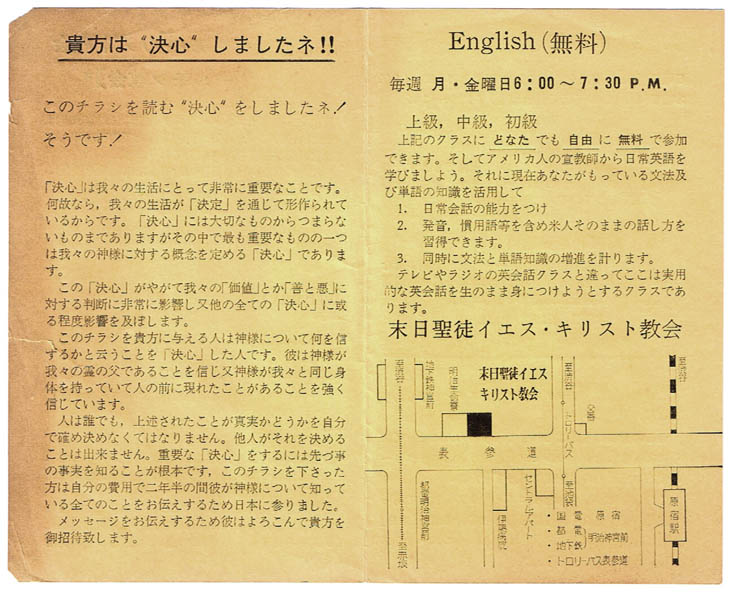 貴方は “決心“ しましたネ!!
このチラシを読む “決心“ をしましたネ!
そうです!
「決心」は我々の生活にとって非常に重要なことです。
何故なら，我々の生活が「決定」を通じて形作られて
いるからです。「決心」には大切なものからつまらな
いものまでありますがその中で最も重要なものの一つ
は我々の神様に対する概念を定める「決心」でありま
す。
この「決心」がやがて我々の「価値」とか「善と悪」に
対する判断に非常に影響し又他の全ての「決心」に或
る程度影響を及ぼします。
このチラシを貴方に与える人は神様について何を信
ずるかと云うことを「決心」した人です。彼は神様が
我々の霊の父であることを信じ又神様が我々と同じ身
体を持っていて人の前に現れたことがあることを強く
信じています。
人は誰でも，上述されたことが真実かどうかを自分
で確め決めなくてはなりません。他人がそれを決める
ことは出来ません。重要な「決心」をするには先づ事
の事実を知ることが根本です，このチラシを下さった
方は自分の費用で二年半の間彼が神様について知って
いる全てのことをお伝えするため日本に参りました。
メッセージをお伝えするため彼はよろこんで貴方を
御招待致します。
English (無料)
毎週 月・金曜日6:00〜7:30 P.M.
上級，中級，初級
上記のクラスに どなた でも 自由 に 無料 で参加
できます。そしてアメリカ人の宣教師から日常英語を
学びましよう。それに現在あなたがもっている文法及
び単語の知識を活用して
1. 日常会話の能力をつけ
2. 発音，慣用語等を含め米人そのままの話し方を
習得できます。
3. 同時に文法と単語知識の増進を計ります。
テレビやラジオの英会話クラスと違ってここは実用
的な英会話を生のまま身につけようとするクラスであ
ります。
末日聖徒イエス・キリスト教会
至渋谷
地下鉄明治神宮前
明治生命寮
末日聖徒イエス
キリスト教会
至渋谷
トロリーバス
交番
至渋谷
表参道
都電明治神宮前
至赤坂
伊藤病院
セントラルアパート
至池袋
原宿駅
・国電 原宿
・都電
・地下鉄
明治神宮前
・トロリーバス表参道